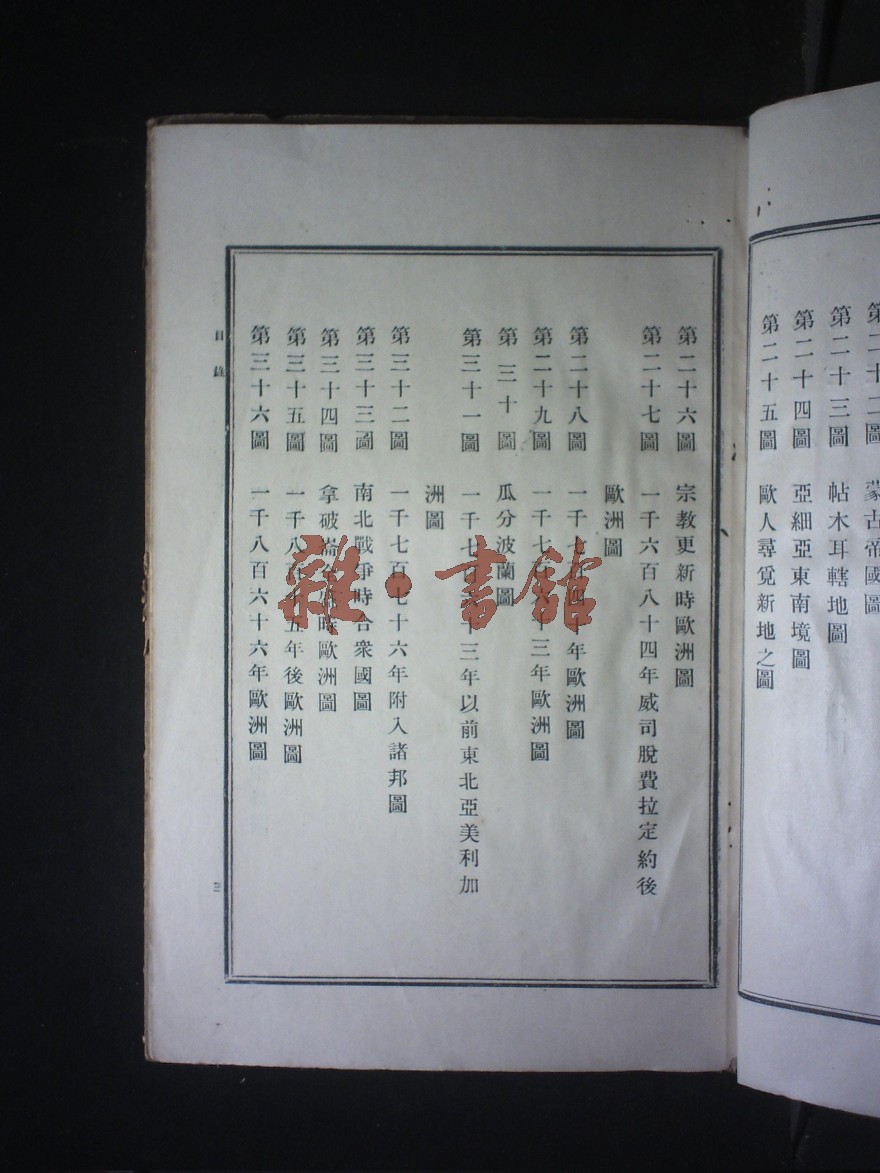 第二十二圖　蒙古帝國圖
第二十三圖　帖木耳轄地圖
第二十四圖　亞細亞東南境圖
第二十五圖　歐人尋覓新地之圖
第二十六圖　宗教更新時歐洲圖
第二十七圖　一千六百八十四年威司脫費拉定約後
歐洲圖
第二十八圖　一千七百四十年歐洲圖
第二十九圖　一千七百六十三年歐洲圖
第三十圖　瓜分波蘭圖
第三十一圖　一千七百六十三年以前東北亞美利加
洲圖
第三十二圖　一千七百七十六年附入諸邦圖
第三十三圖　南北戰爭時合衆國圖
第三十四圖　拿破崙時歐洲圖
第三十五圖　一千八百十五年後歐洲圖
第三十六圖　一千八百六十六年歐洲圖
目錄
三
雜·書館